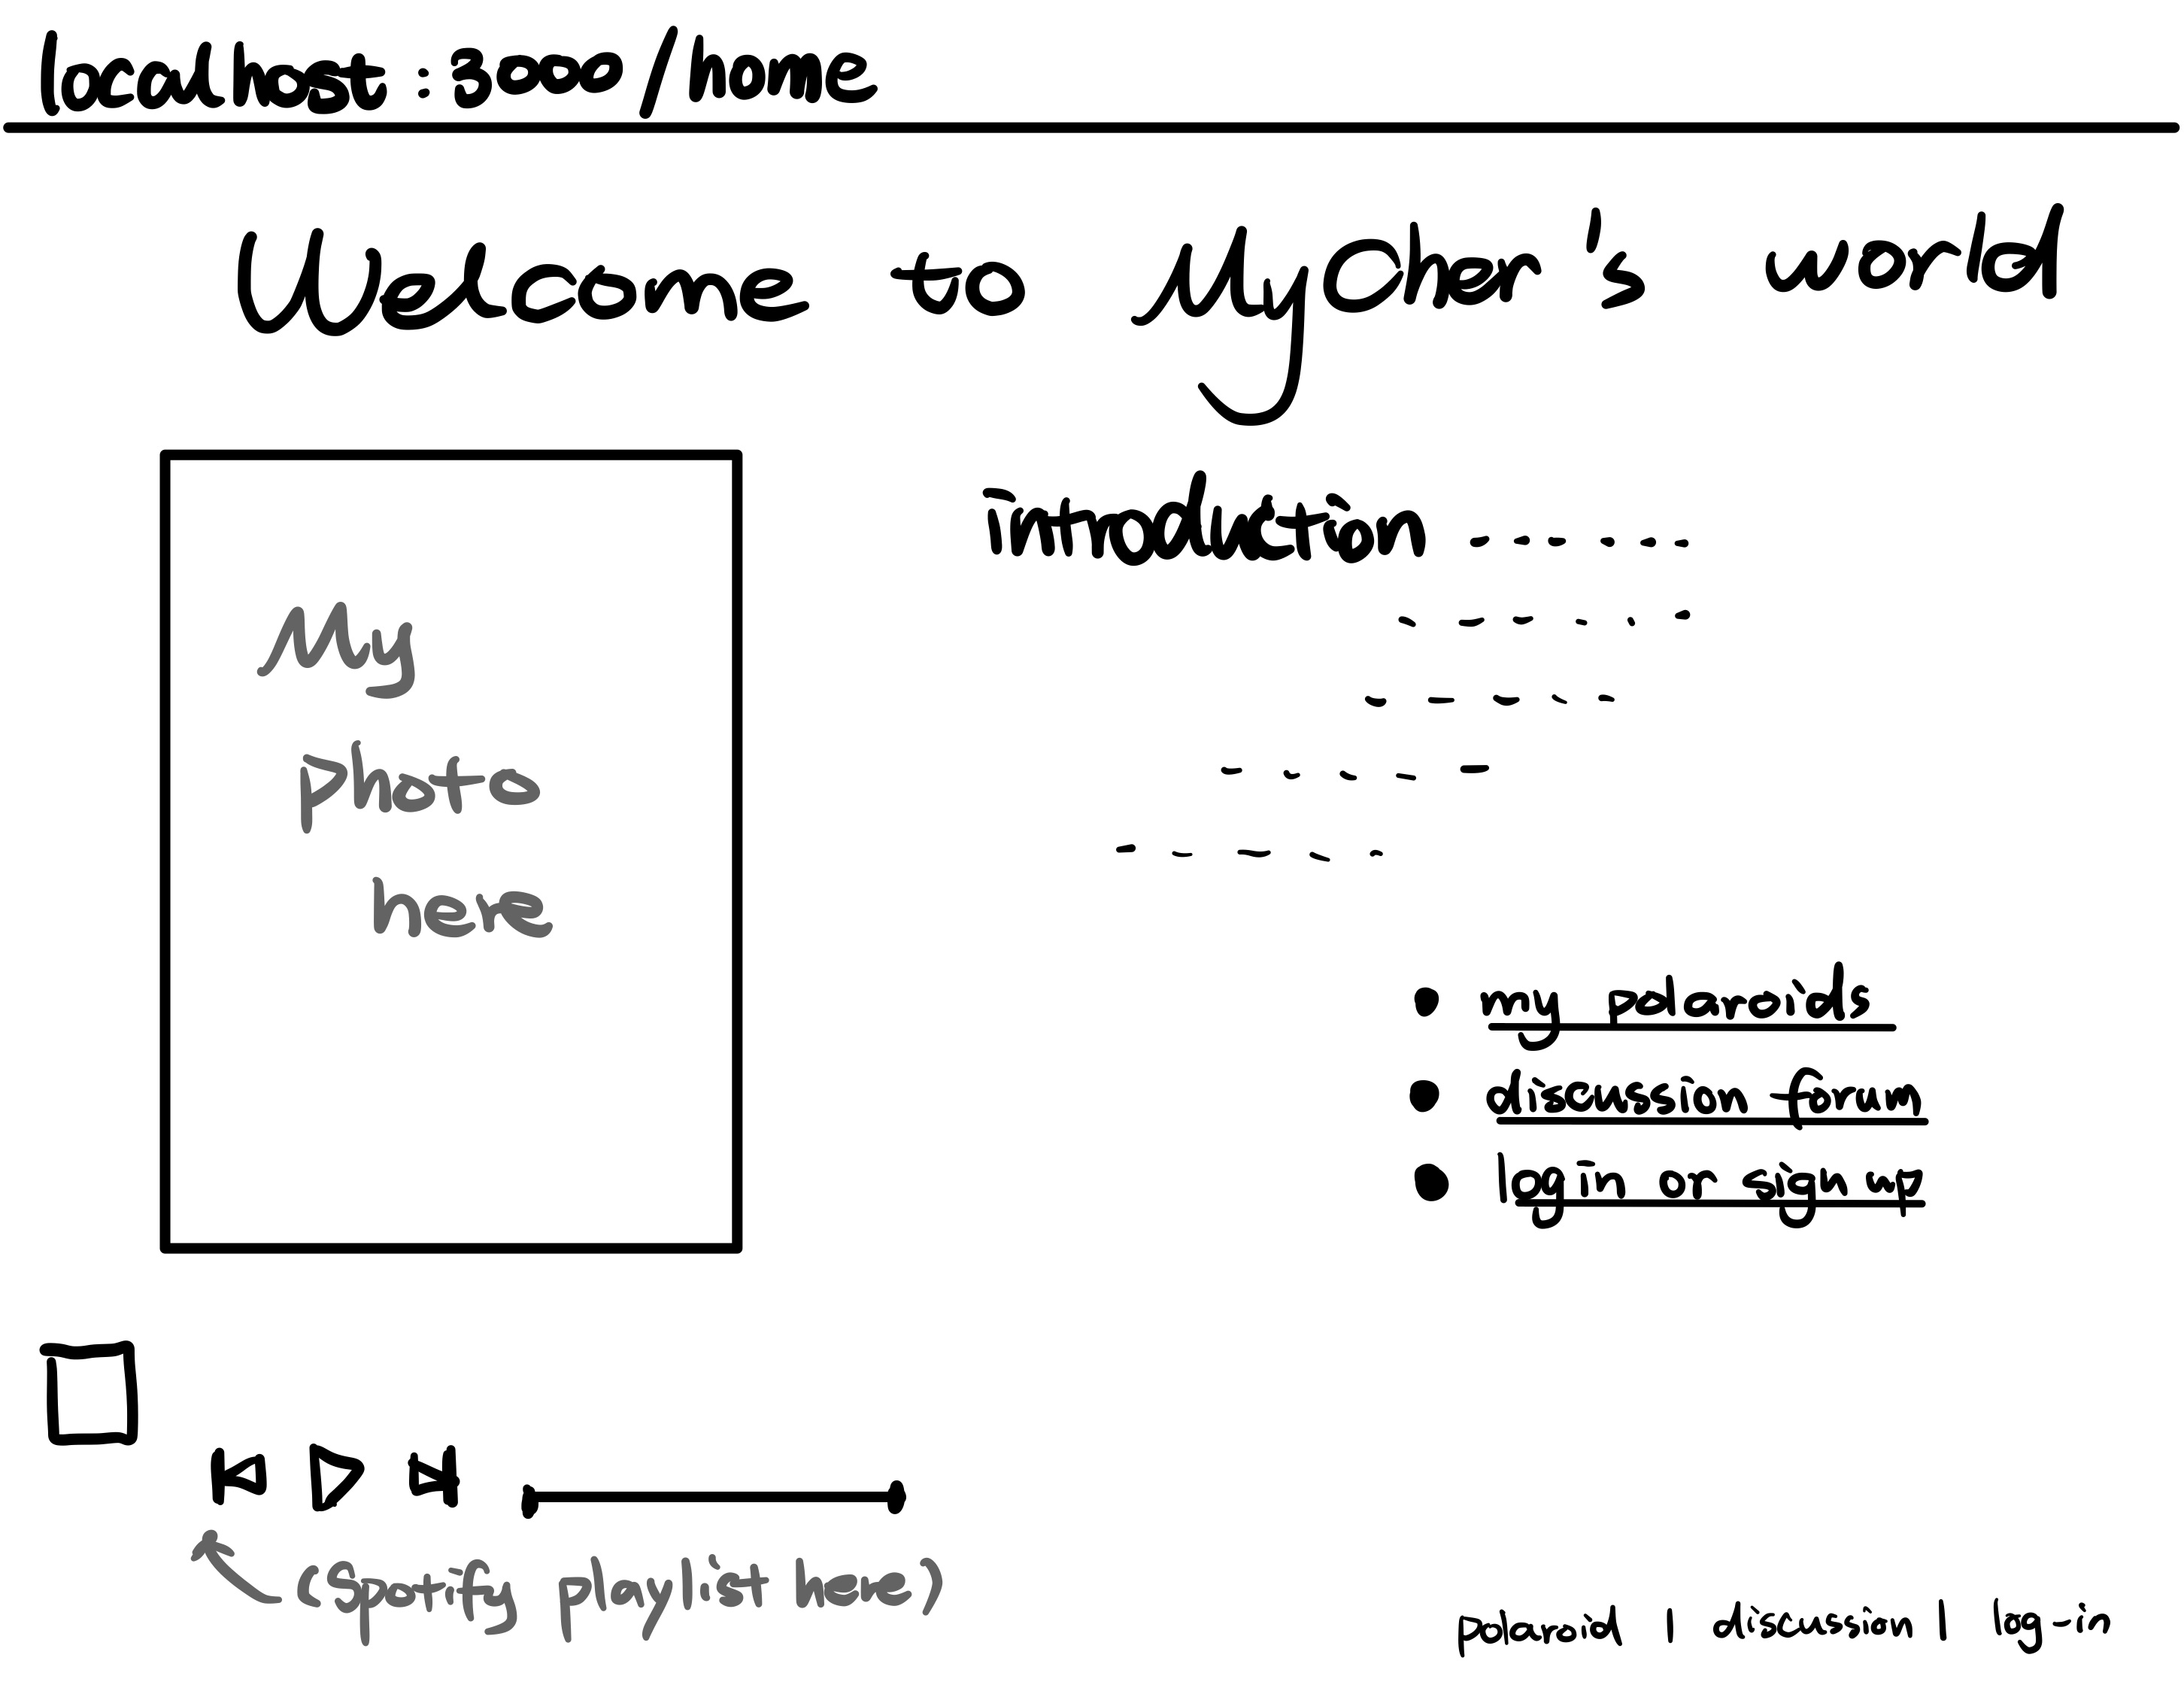 localhost:3000/home
Welcome to Mycher's world
introduction ......
My
photo
here
• my polaroids
• discussion forum
• login or signup
(spotify playlist here)
polaroid | discussion | log-in